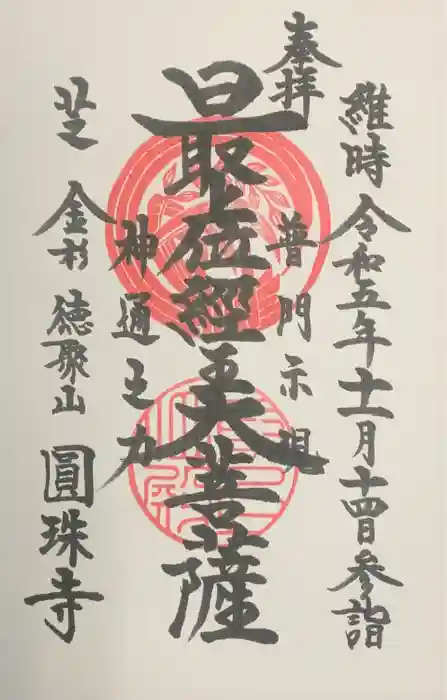 維時令和五年十一月十四日参詣
奉拝
普門示現
最上位經王大菩薩
神通之力
芝金杉徳聚山圓珠寺